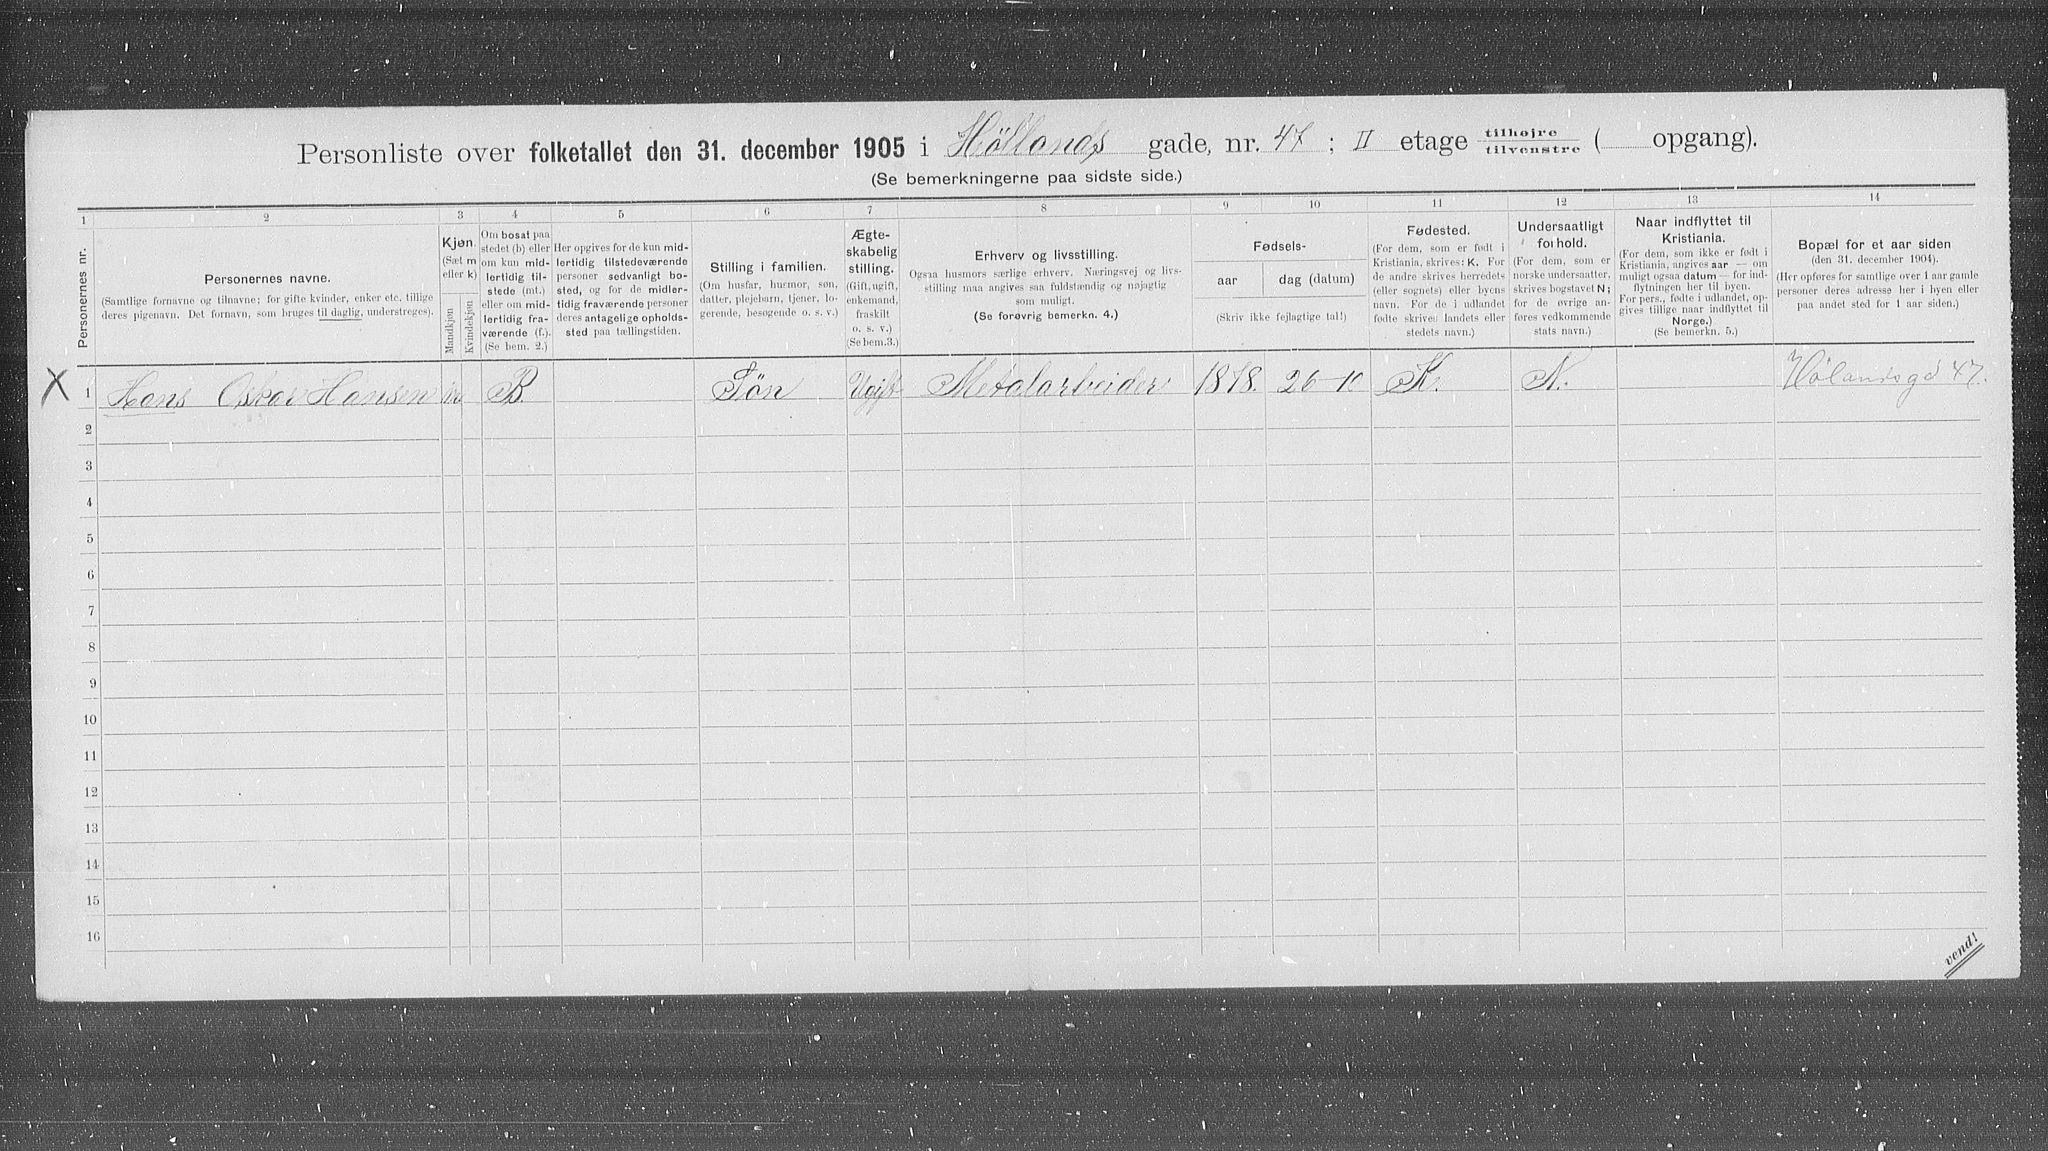 Personliste over folketallet den 31. december 1905 i Höllands gade, nr. 47 ; II etage tilhøjre / tilvenstre ( opgang).
(Se bemerkningerne paa sidste side.)
1 2 3 4 5 6 7 8 9 10 11 12 13 14
Personernes nr.
Personernes navne.
(Samtlige fornavne og tilnavne; for gifte kvinder, enker etc. tillige
deres pigenavn. Det fornavn, som bruges til daglig, understreges).
Kjøn.
(Sæt m
eller k)
Mandkjøn
Kvindekjøn
Om bosat paa
stedet (b) eller
om kun mid-
lertidig til-
stede (mt.)
eller om mid-
lertidig fra-
værende (f.).
(Se bem. 2.)
Her opgives for de kun mid-
lertidig tilstedeværende
personer sedvanligt bo-
sted, og for de midler-
tidig fraværende personer
deres antagelige opholds-
sted paa tællingstiden.
Stilling i familien.
(Om husfar, husmor, søn,
datter, plejebarn, tjener, lo-
gerende, besøgende o. s. v.)
Ægte-
skabelig
stilling.
(Gift, ugift,
enkemand,
fraskilt
o. s. v.)
(Se bem.3.)
Erhverv og livsstilling.
Ogsaa husmors særlige erhverv. Næringsvej og livs-
stilling maa angives saa fuldstændig og nøjagtig
som muligt.
(Se forøvrig bemerkn. 4.)
Fødsels-
aar
dag (datum)
(Skriv ikke fejlagtige tal!)
Fødested.
(For dem, som er født i
Kristiania, skrives: K. For
de andre skrives herredets
(eller sognets) eller byens
navn. For de i udlandet
fødte skrives landets eller
stedets navn.)
Undersaatligt
forhold.
(For dem, som er
norske undersaatter,
skrives bogstavet N;
for de øvrige an-
føres vedkommende
stats navn.)
Naar indflyttet til
Kristiania.
(For dem, som ikke er født i
Kristiania, angives aar — om
muligt ogsaa datum — for ind-
flytningen her til byen.
For pers., fødte i udlandet, op-
gives tillige naar indflyttet til
Norge.)
(Se bemerkn. 5.)
Bopæl for et aar siden
(den 31. december 1904).
(Her opføres for samtlige over 1 aar gamle
personer deres adresse her i byen eller
paa andet sted for 1 aar siden.)
X 1 Hans Oskar Hansen m B. Søn Ugift Metalarbeider 1878. 26-10 K. N. Hölandsgd 47.
2
3
4
5
6
7
8
9
10
11
12
13
14
15
16
vend!